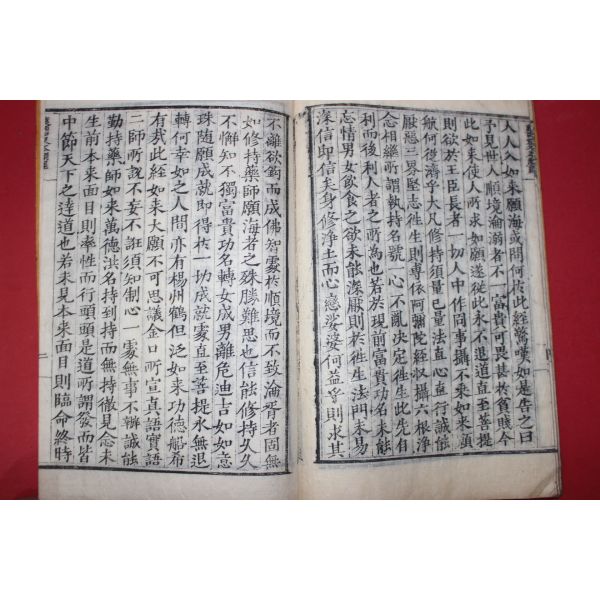 人人入如来願海或問何扵此經驚嘆如是告之曰
予見世人順境淪溺者不一富貴可畏甚扵貧賤今
此如来使人所求如願遂從此永不退道直至菩提
則欲扵王臣長者一切人中作同事攝不乘如来願
航何從濟乎大凡修持須量已量法直心直行誠能
厭惡三界堅志徃生則專依阿彌陀経収攝六根淨
念相繼所謂執持名號一心不亂決定徃生此先自
利而後利人者之所為也若扵現前富貴功名未能
忘情男女飲食之欲未能深厭則扵徃生法門未易
深信即信矣身修淨土而心戀娑婆何益乎則求其
不離欲鉤而成佛智處扵順境而不致淪胥者固無
如修持藥師願海者之殊勝難思也信能修持久久
不懈知不獨富貴功名轉女成男離危迪吉如如意
珠随願成就即得扵一切成就處直至菩提永無退
轉何幸如之人間亦有楊州鶴但泛如来功德船希
有哉此経如来大願不可思議金口所宣真語實語
二師所説不妄不誑須知制心一處無事不辦誠能
勤持藥師如来萬德洪名持到持而無持徹見念未
生前本来面目則率性而行頭頭是道所謂發而皆
中節天下之達道也若未見本来面目則臨命終時